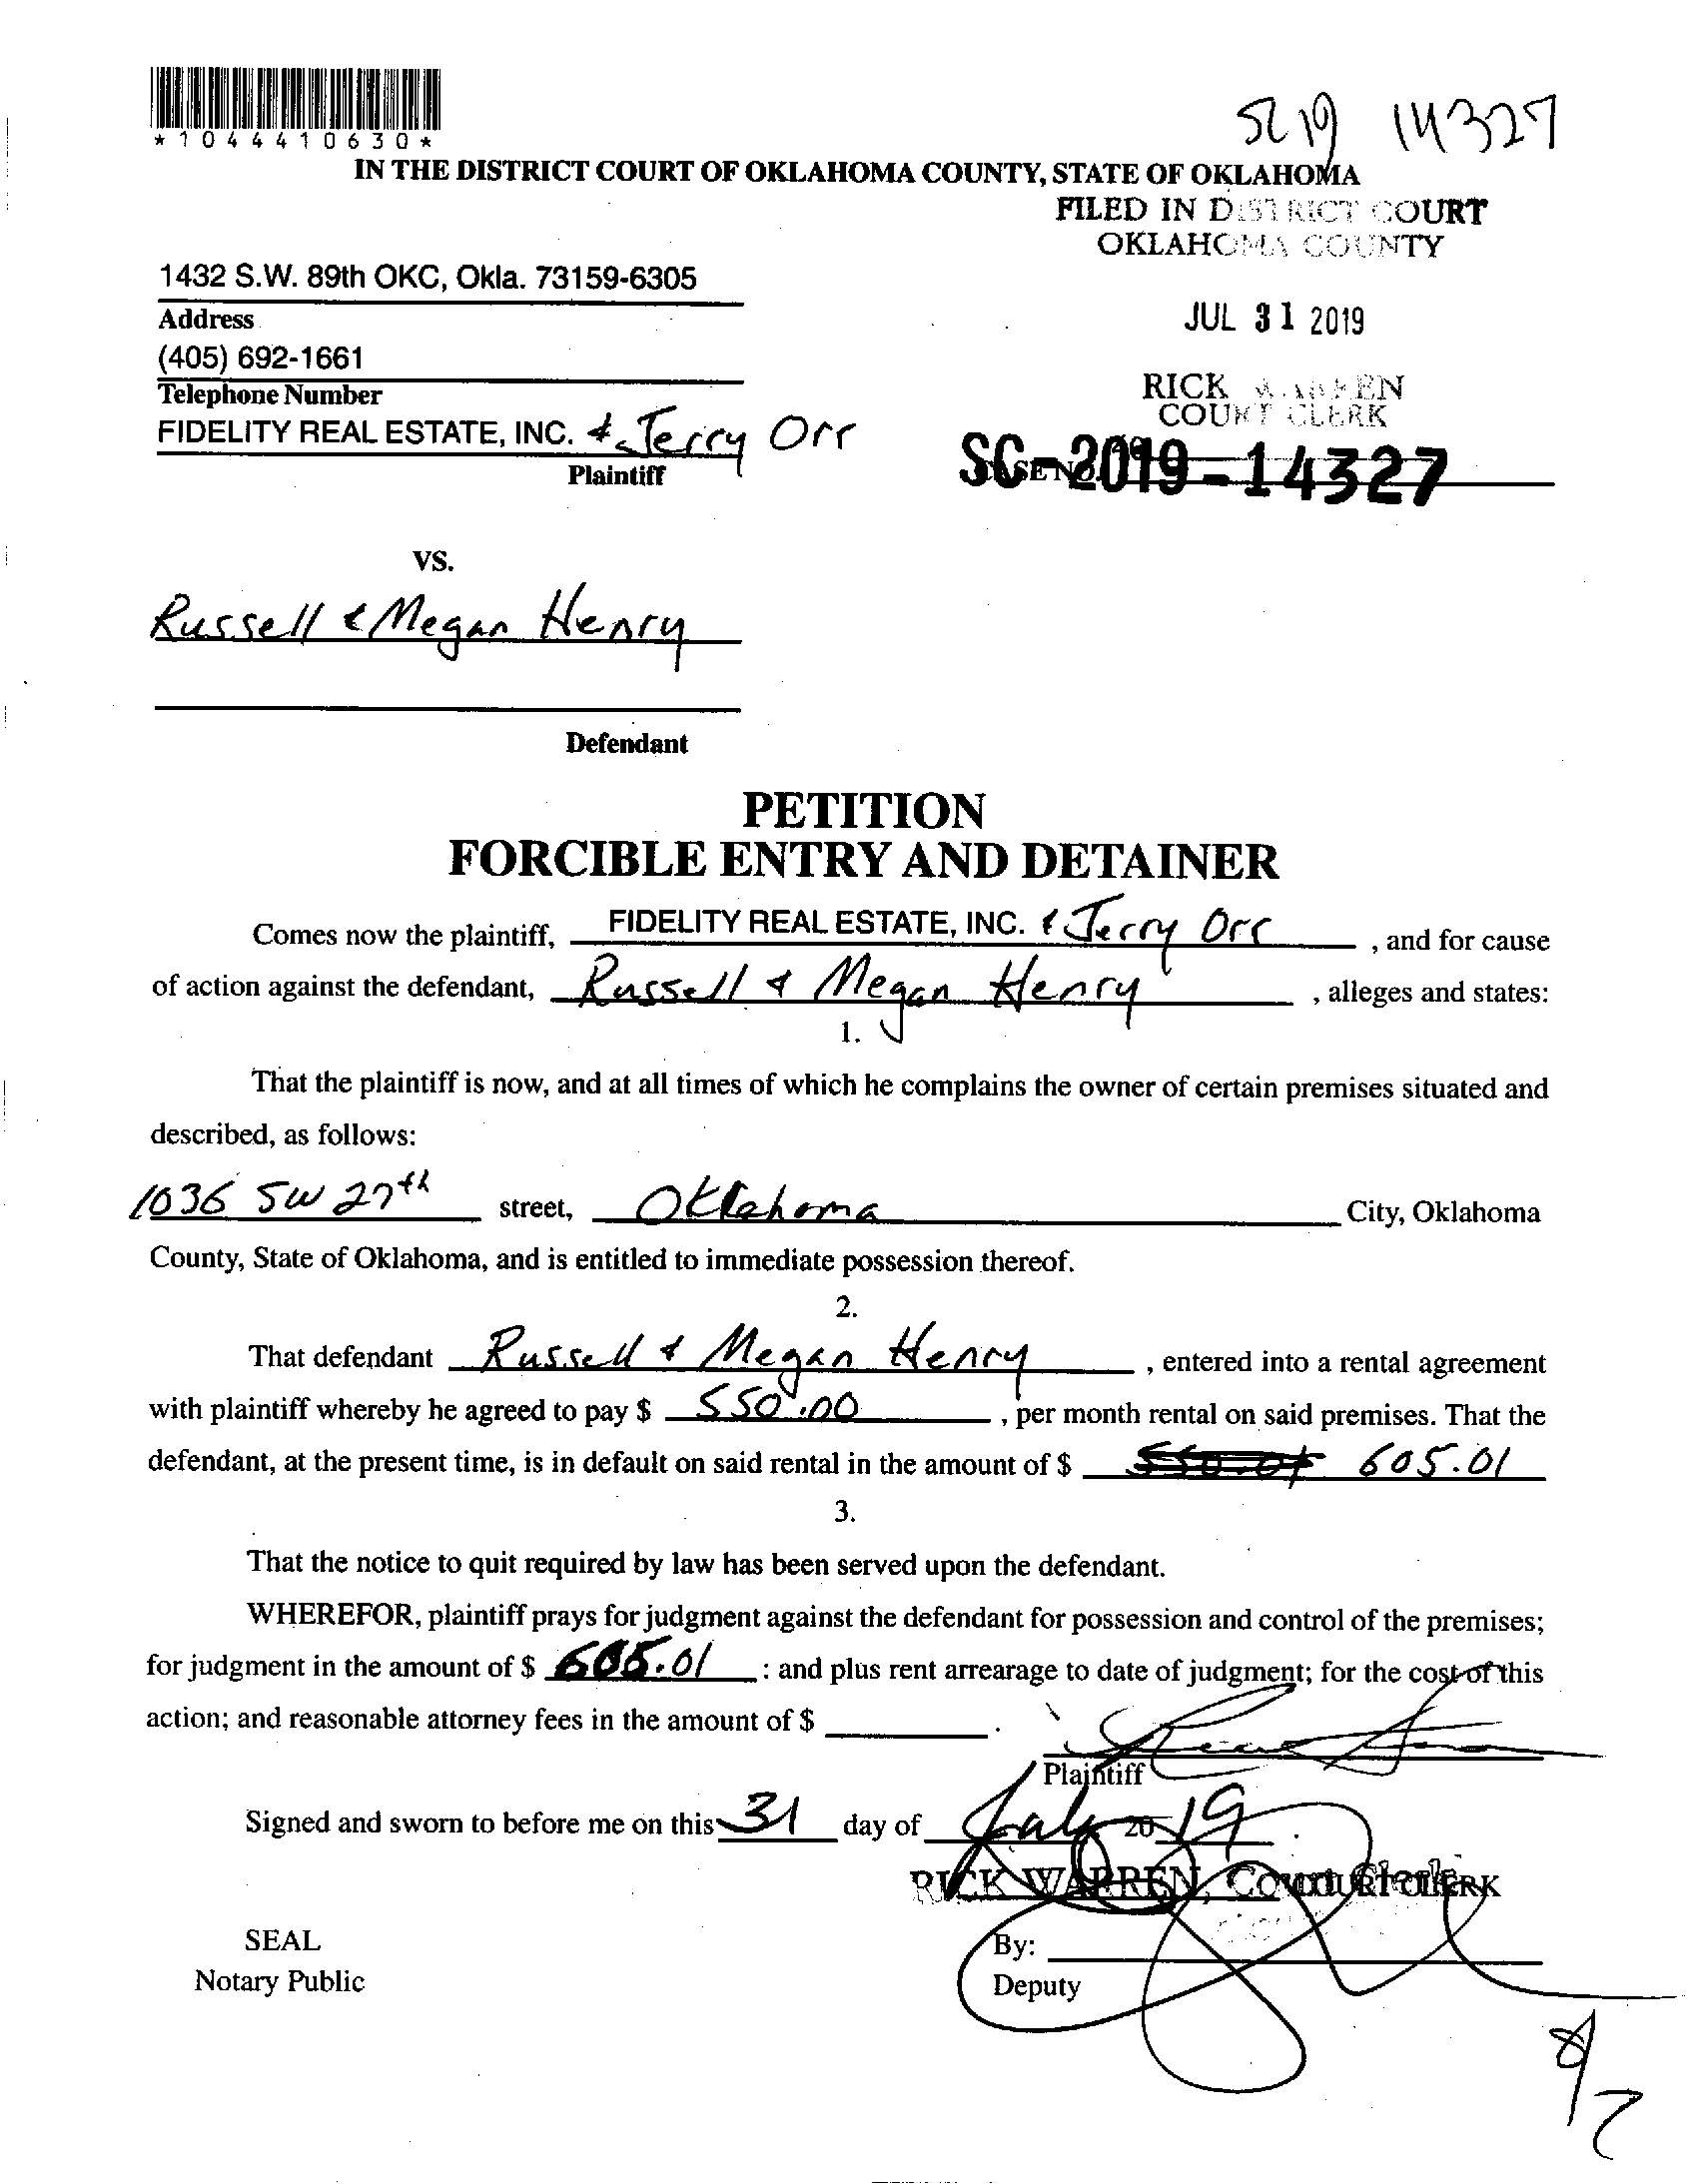 *1044410630*
SC 19 14327
IN THE DISTRICT COURT OF OKLAHOMA COUNTY, STATE OF OKLAHOMA
FILED IN DISTRICT COURT
OKLAHOMA COUNTY
1432 S.W. 89th OKC, Okla. 73159-6305
Address
JUL 31 2019
(405) 692-1661
Telephone Number
RICK WARREN
COURT CLERK
FIDELITY REAL ESTATE, INC. & Jerry Orr
Plaintiff
CASE NO. SC-2019-14327
VS.
Russell & Megan Henry
Defendant
PETITION
FORCIBLE ENTRY AND DETAINER
Comes now the plaintiff, FIDELITY REAL ESTATE, INC. & Jerry Orr , and for cause
of action against the defendant, Russell & Megan Henry , alleges and states:
1.
That the plaintiff is now, and at all times of which he complains the owner of certain premises situated and
described, as follows:
1036 SW 27th street, Oklahoma City, Oklahoma
County, State of Oklahoma, and is entitled to immediate possession thereof.
2.
That defendant Russell & Megan Henry , entered into a rental agreement
with plaintiff whereby he agreed to pay $ 550.00 , per month rental on said premises. That the
defendant, at the present time, is in default on said rental in the amount of $ 605.01
3.
That the notice to quit required by law has been served upon the defendant.
WHEREFOR, plaintiff prays for judgment against the defendant for possession and control of the premises;
for judgment in the amount of $ 605.01 : and plus rent arrearage to date of judgment; for the cost of this
action; and reasonable attorney fees in the amount of $ .
Plaintiff
Signed and sworn to before me on this 31 day of July 20 19
RICK WARREN, Court Clerk COURT CLERK
SEAL
By:
Notary Public
Deputy
8/7